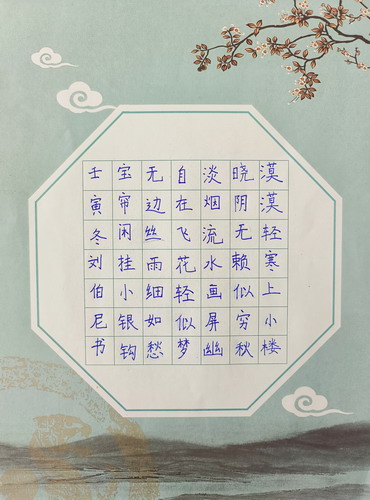 漠漠轻寒上小楼
晓阴无赖似穷秋
淡烟流水画屏幽
自在飞花轻似梦
无边丝雨细如愁
宝帘闲挂小银钩
壬寅冬刘伯尼书